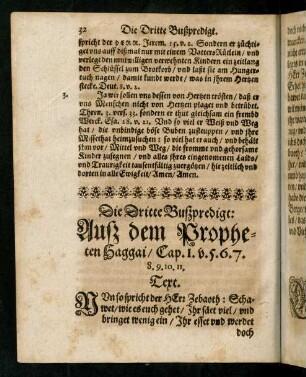 32 Die Dritte Bußpredigt.
spricht der HErr. Jerem. 15. v. 2. Sondern er züchti-
get uns auff dißmal nur mit einem Vatters Rütlein / und
verlegt den mutwilligen verzehnten Kindern ein zeitlang
den Schlüssel zum Brotkorb / und lasst sie am Hunger-
tuch nagen / damit kund werde / was in jhrem Hertzen
stecke. Deut. 8. v. 2.
3. Ja wir sollen uns dessen von Hertzen trösten / daß er
uns Menschen nicht von Hertzen plaget und betrübet.
Thren. 3. vers. 33. sondern er thut gleichsam ein frembd
Werck. Esa. 28. v. 21. Und so viel er Weiß und Weg
hat / die unbändige böse Buben zusteuppen / und jhre
Missethat heimzusuchen : so viel hat er auch / und behält
jhm vor / Mittel und Weg / die fromme und gehorsame
Kinder zusegnen / und alles jhres eingenomenen Laids /
und Traurigkeit tausentfältig zuergehen / hie zeitlich und
dorten in alle Ewigkeit / Amen / Amen.
Die Dritte Bußpredigt:
Auß dem Prophe-
ten Haggai / Cap. 1. v. 5. 6. 7.
8. 9. 10. 11.
Text.
NUn so spricht der HErr Zebaoth : Scha-
wet / wie es euch gehet / Jhr säet viel / und
bringet wenig ein / Jhr esset und werdet
doch